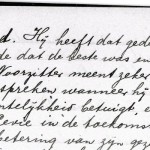 d. Hij heeft dat ged
de dat de beste was en
Voorzitter meent zeker
spreken wanneer hij
ntelijkheid betuigt, e
lesie in de toekoms
betering van zijn gez